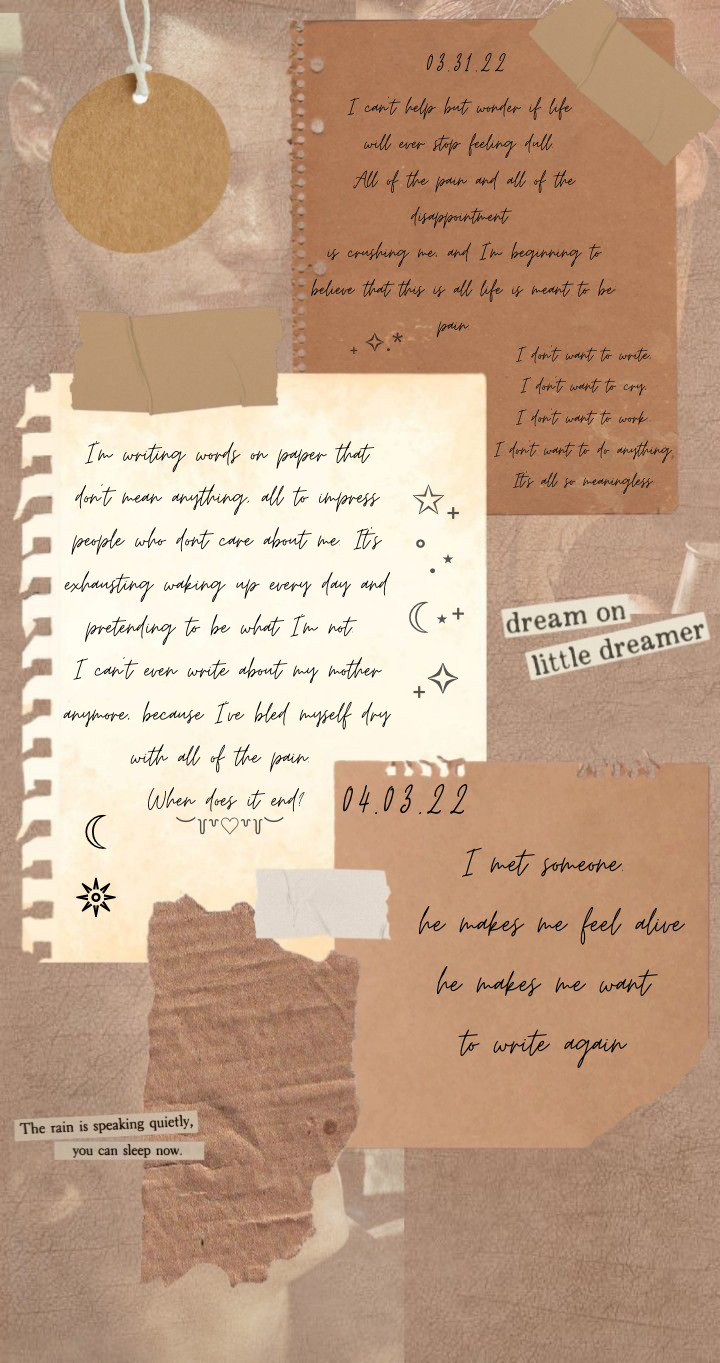 03.31.22
I can't help but wonder if life
will ever stop feeling dull
All of the pain and all of the
disappointment
is crushing me. and I'm beginning to
believe that this is all life is meant to be
pain
I don't want to write.
I don't want to cry.
I don't want to work
I don't want to do anything.
It's all so meaningless
I'm writing words on paper that
don't mean anything. all to impress
people who dont care about me. It's
exhausting waking up every day and
pretending to be what I'm not.
I can't even write about my mother
anymore. because I've bled myself dry
with all of the pain
When does it end?
dream on
little dreamer
04.03.22
I met someone.
he makes me feel alive
he makes me want
to write again
The rain is speaking quietly,
you can sleep now.